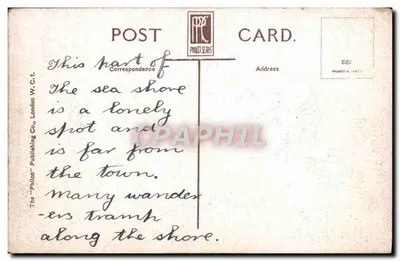 POST CARD.
PPC
PHILCO SERIES
Correspondence
Address
The "Philco" Publishing Co., London W.C.1.
This part of
The sea shore
is a lonely
spot and
is far from
the town.
Many wander
-ers tramp
along the shore.
CPAPHIL